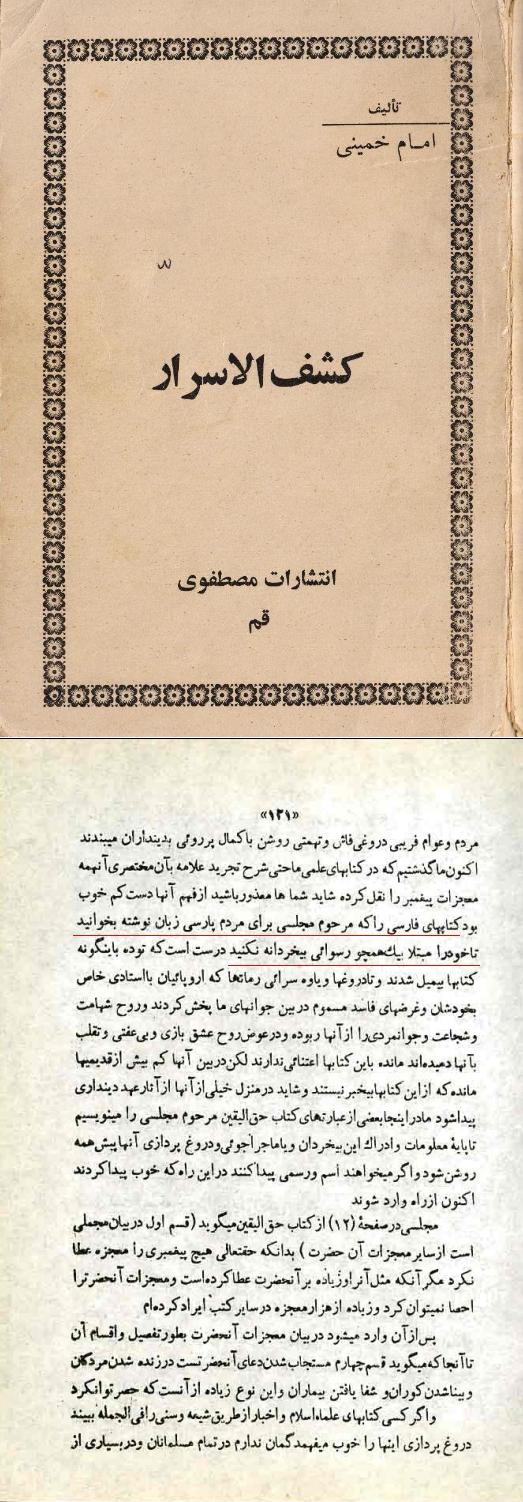 تألیف
امام خمینی
کشف الاسرار
انتشارات مصطفوی
قم
«۱۲۱»
مردم وعوام فریبی دروغی فاش وتهمتی روشن باکمال پرروئی بدینداران میبندند
اکنون ماگذشتیم که درکتابهای علمی ماحتی شرح تجرید علامه بآن مختصری آنهمه
معجزات پیغمبر را نقل کرده شاید شما ها معذورباشید ازفهم آنها دست کم خوب
بود کتابهای فارسی را که مرحوم مجلسی برای مردم پارسی زبان نوشته بخوانید
تاخودرا مبتلا بیك همچو رسوائی بیخردانه نکنید درست است که توده باینگونه
کتابها بیمیل شدند وتادروغها ویاوه سرائی رمانها که اروپائیان بااستادی خاص
بخودشان وغرضهای فاسد مسموم دربین جوانهای ما پخش کردند وروح شهامت
وشجاعت وجوانمردی را ازآنها ربوده ودرعوض روح عشق بازی وبی عفتی وتقلب
بآنها دمیده‌اند مانده باین کتابها اعتنائی ندارند لکن دربین آنها کم بیش ازقدیمیها
مانده که ازاین کتابها بیخبر نیستند وشاید درمنزل خیلی ازآنها ازآثار عهد دینداری
پیداشود مادراینجا بعضی ازعبارتهای کتاب حق الیقین مرحوم مجلسی را مینویسیم
تاپایهٔ معلومات وادراك این بیخردان ویاماجراجوئی ودروغ پردازی آنها پیش همه
روشن شود واگر میخواهند اسم ورسمی پیداکنند دراین راه که خوب پیداکردند
اکنون ازراه وارد شوند
مجلسی درصفحهٔ (۱۲) ازکتاب حق الیقین میگوید (قسم اول دربیان مجملی
است ازسایرمعجزات آن حضرت) بدانکه حقتعالی هیچ پیغمبری را معجزه عطا
نکرد مگر آنکه مثل آنرا وزیاده برآنحضرت عطاکرده‌است ومعجزات آنحضرترا
احصا نمیتوان کرد وزیاده ازهزارمعجزه درسایر کتب ایراد کرده‌ام
پس ازآن وارد میشود دربیان معجزات آنحضرت بطورتفصیل واقسام آن
تاآنجا که میگوید قسم چهارم مستجاب شدن دعای آنحضرتست درزنده شدن مردگان
وبیناشدن کوران و شفا یافتن بیماران واین نوع زیاده ازآنست که حصر توانکرد
واگر کسی کتابهای علماء اسلام واخبار ازطریق شیعه وسنی رافی الجمله ببیند
دروغ پردازی اینها را خوب میفهمد گمان ندارم درتمام مسلمانان ودربسیاری از